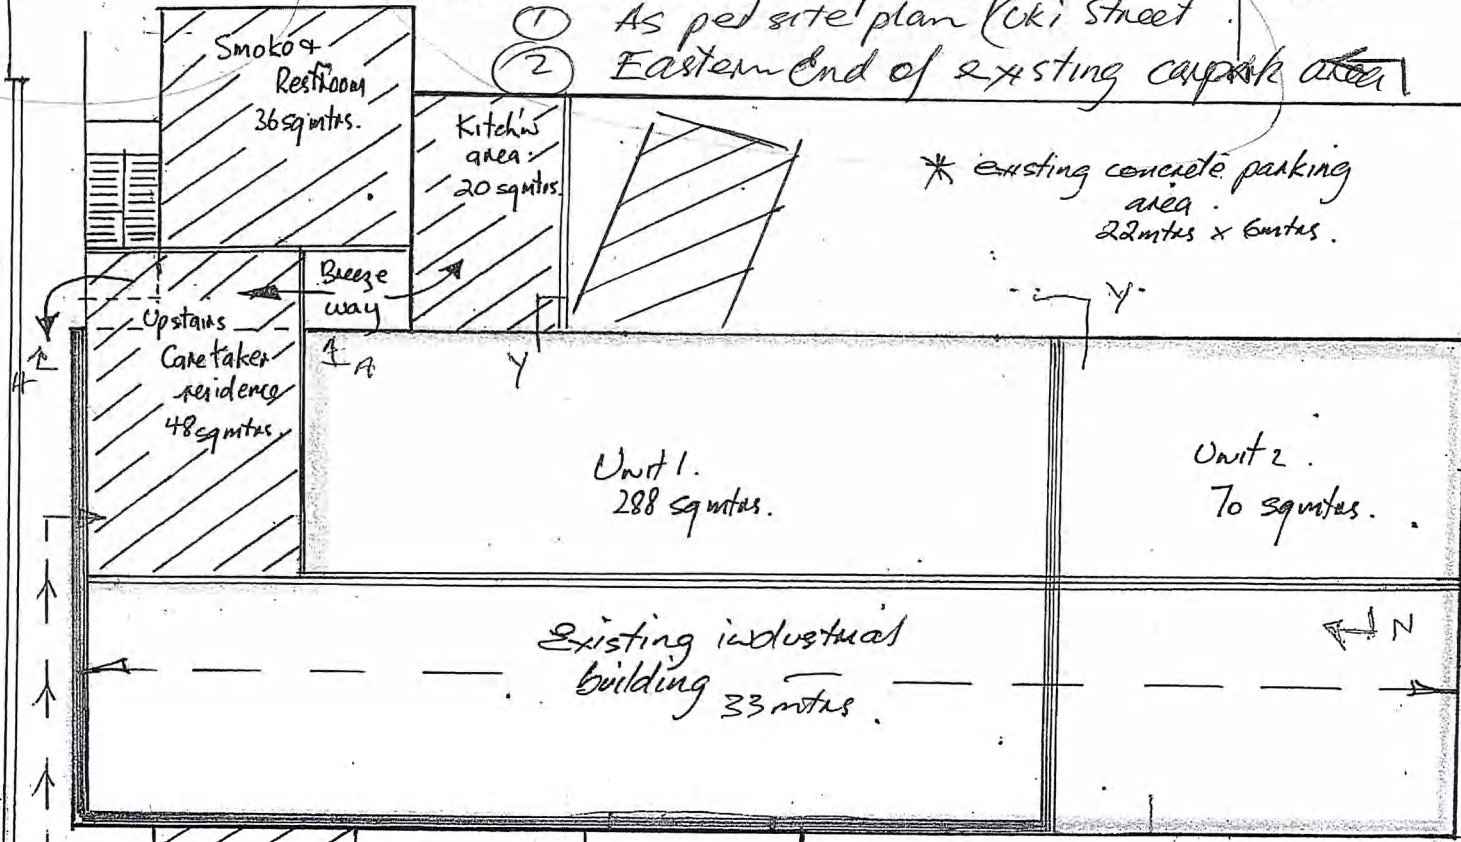 ① As per site plan Uki Street.
② Eastern End of existing carpark area
Smoko &
Restroom
36 sq mtrs.
Kitch'n
area.
20 sq mtrs.
* existing concrete parking
area.
22mtrs x 6mtrs.
Breeze
way
Upstairs
Caretaker
residence
48 sq mtrs.
A
A
Y
Y
Unit 1.
288 sq mtrs.
Unit 2.
70 sq mtrs.
N
Existing industrial
building 33 mtrs.